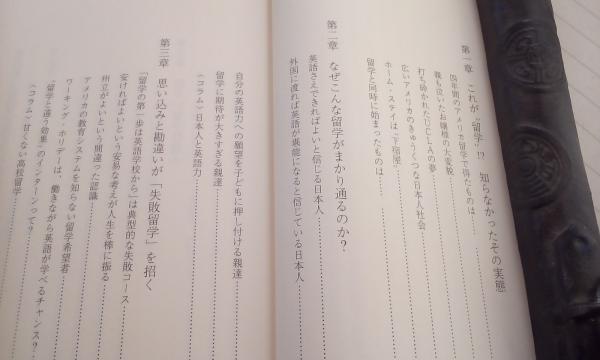 第一章 これが“留学”!? 知らなかったその実態
四年間のアメリカ留学で得たものは
親も泣いたお嬢様の大変貌
打ち砕かれたUCLAの夢
広いアメリカのきゅうくつな日本人社会
ホーム・ステイは“下宿屋”
留学と同時に始まったものは
第二章 なぜこんな留学がまかり通るのか?
英語さえできればよいと信じる日本人
外国に渡れば英語が堪能になると信じている日本人
自分の英語力への願望を子どもに押し付ける親達
留学に期待が大きすぎる親達
〈コラム〉日本人と英語力
第三章 思い込みと勘違いが「失敗留学」を招く
「留学の第一歩は英語学校から」は典型的な失敗コース
安ければよいという安易な考えが人生を棒に振る
州立がよいという間違った認識
アメリカの教育システムを知らない留学希望者
ワーキング・ホリデーは、働きながら英語が学べるチャンス?
“留学と違う効果”のインターンって?
〈コラム〉甘くない高校留学